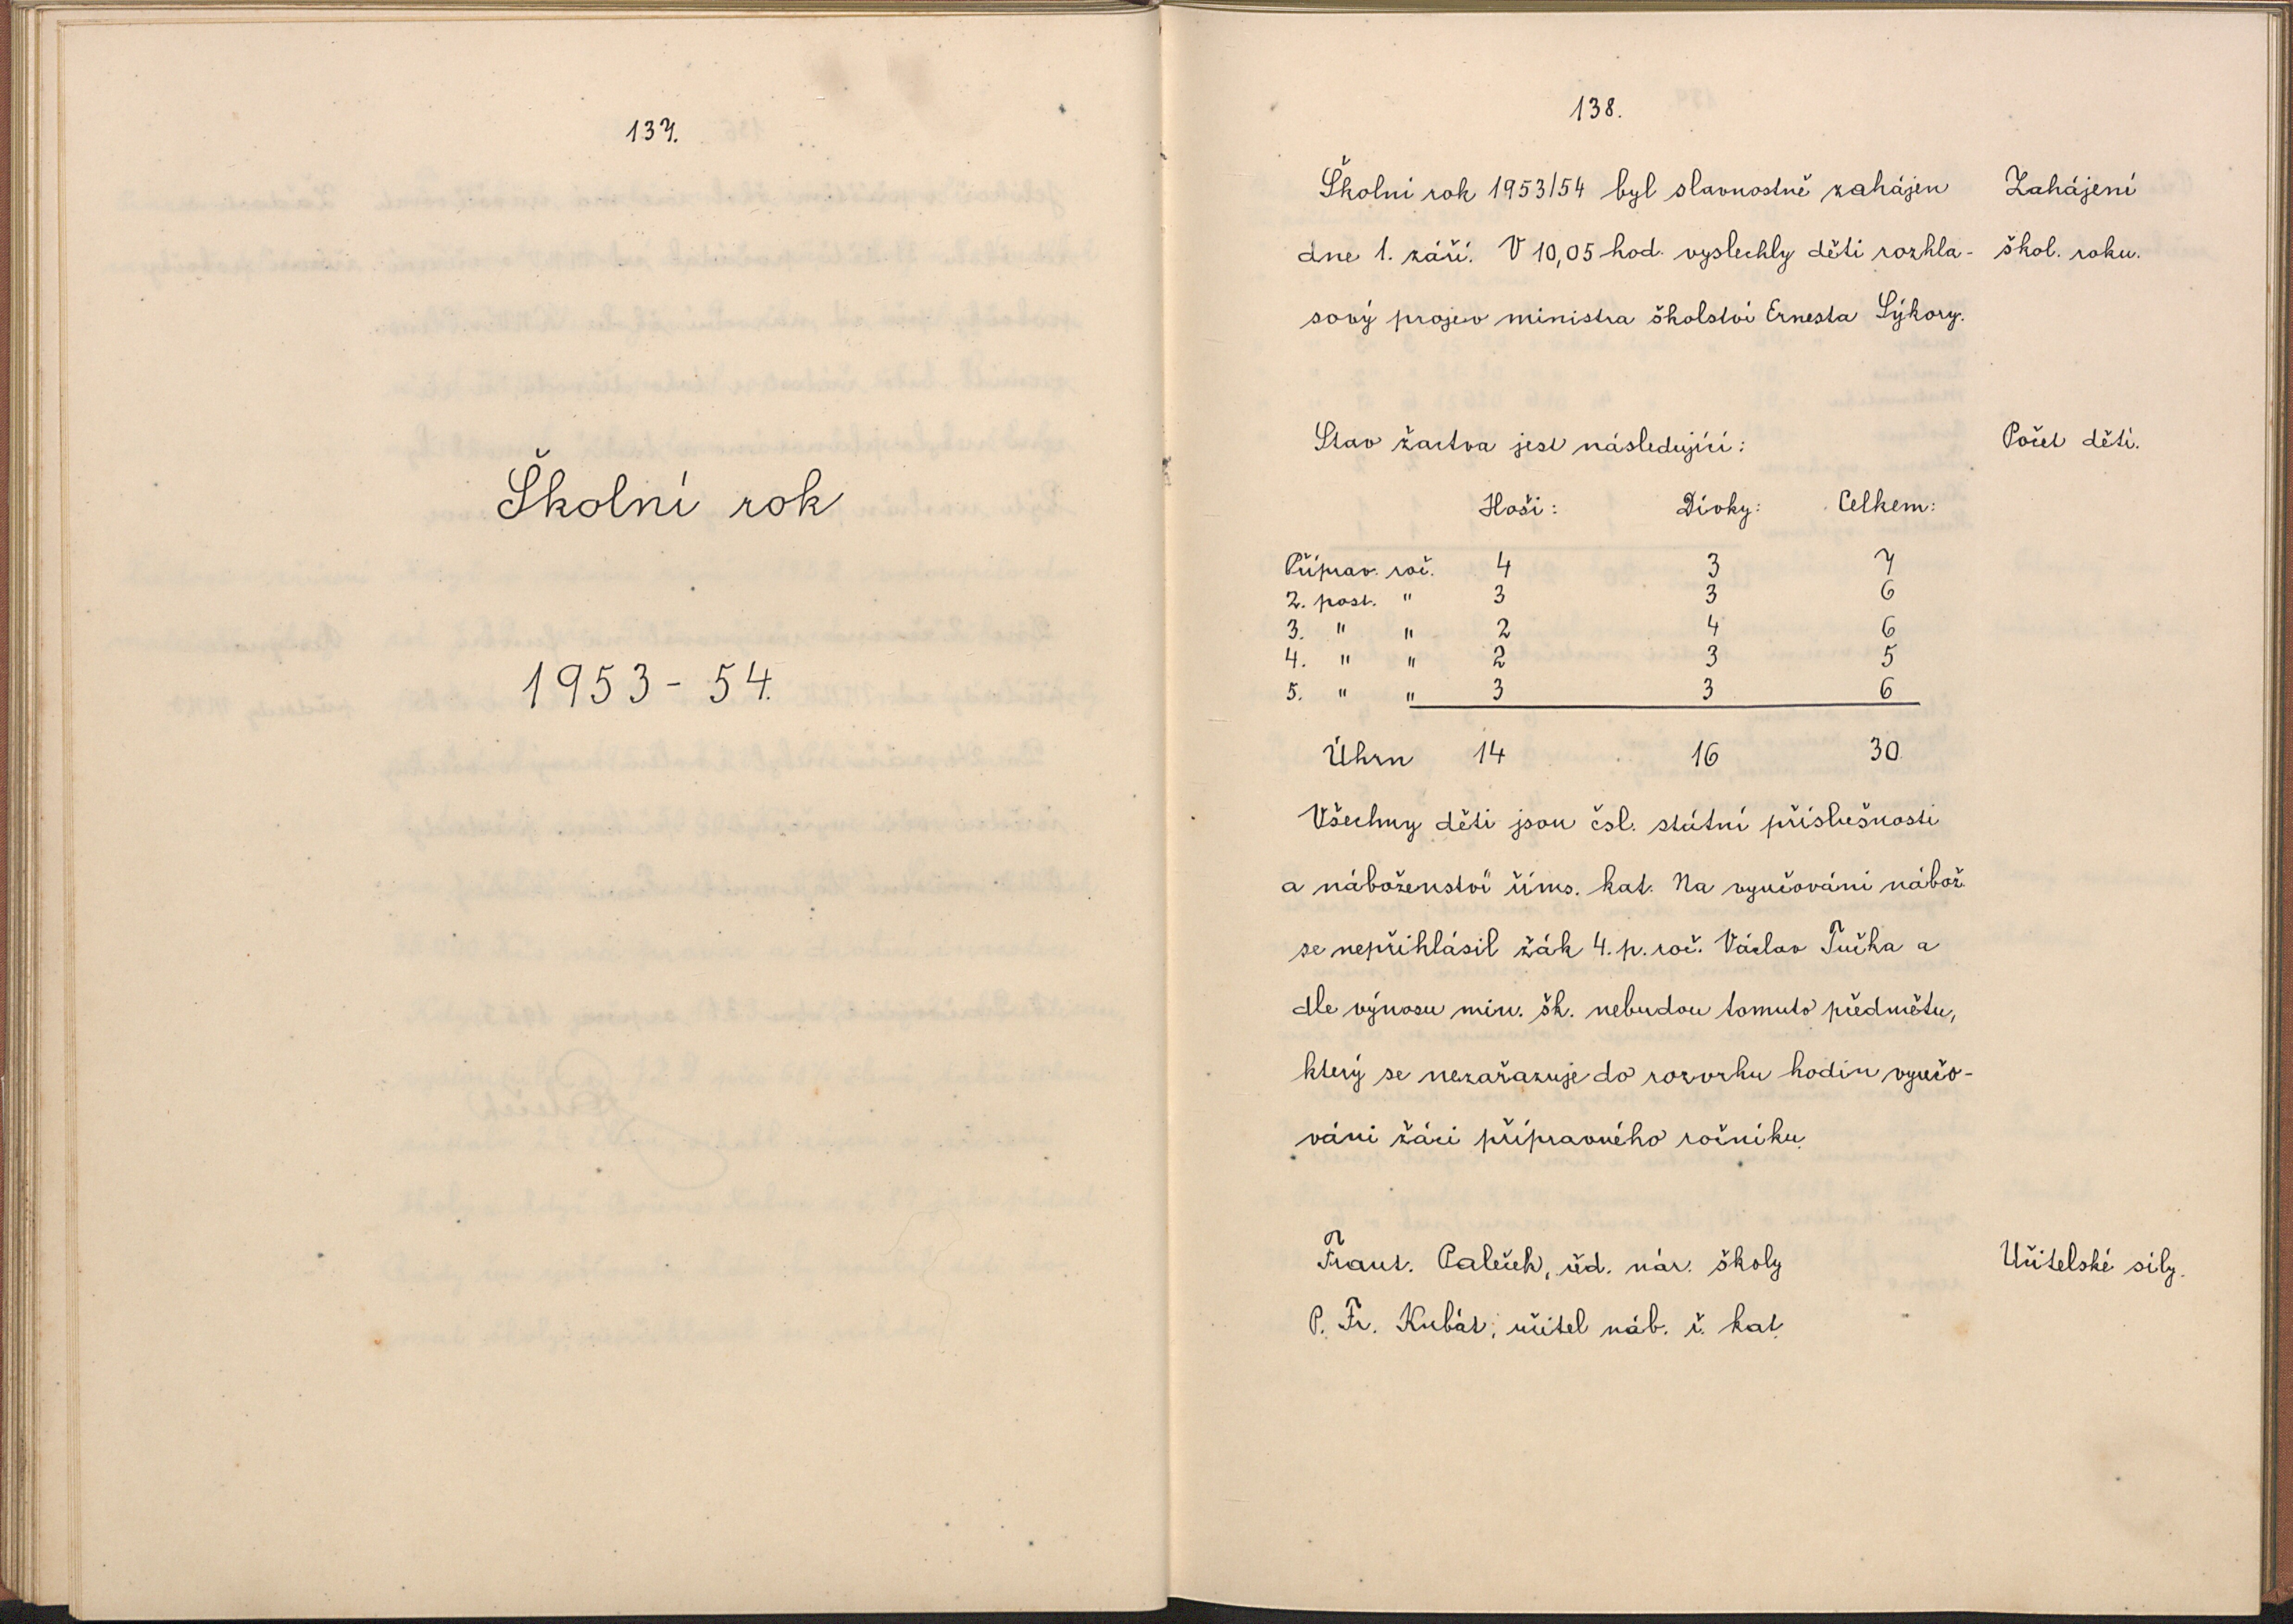 137.
Školní rok
1953 - 54.
138.
Školní rok 1953/54 byl slavnostně zahájen
Zahájení
dne 1. září. V 10,05 hod. vyslechly děti rozhla-
škol. roku.
sový projev ministra školství Ernesta Sýkory.
Stav žactva jest následující:
Počet dětí.
Hoši: Dívky: Celkem:
Příprav. roč. 4 3 7
2. post. " 3 3 6
3. " " 2 4 6
4. " " 2 3 5
5. " " 3 3 6
Úhrn 14 16 30
Všechny děti jsou čsl. státní příslušnosti
a náboženství řims. kat. Na vyučování nábož.
se nepřihlásil žák 4. p. roč. Václav Tučka a
dle výnosu min. šk. nebudou tomuto předmětu,
který se nezařazuje do rozvrhu hodin vyučo-
váni žáci přípravného ročníku.
Frant. Paleček, řed. nár. školy
Učitelské síly.
P. Fr. Kubát, učitel náb. ř. kat.